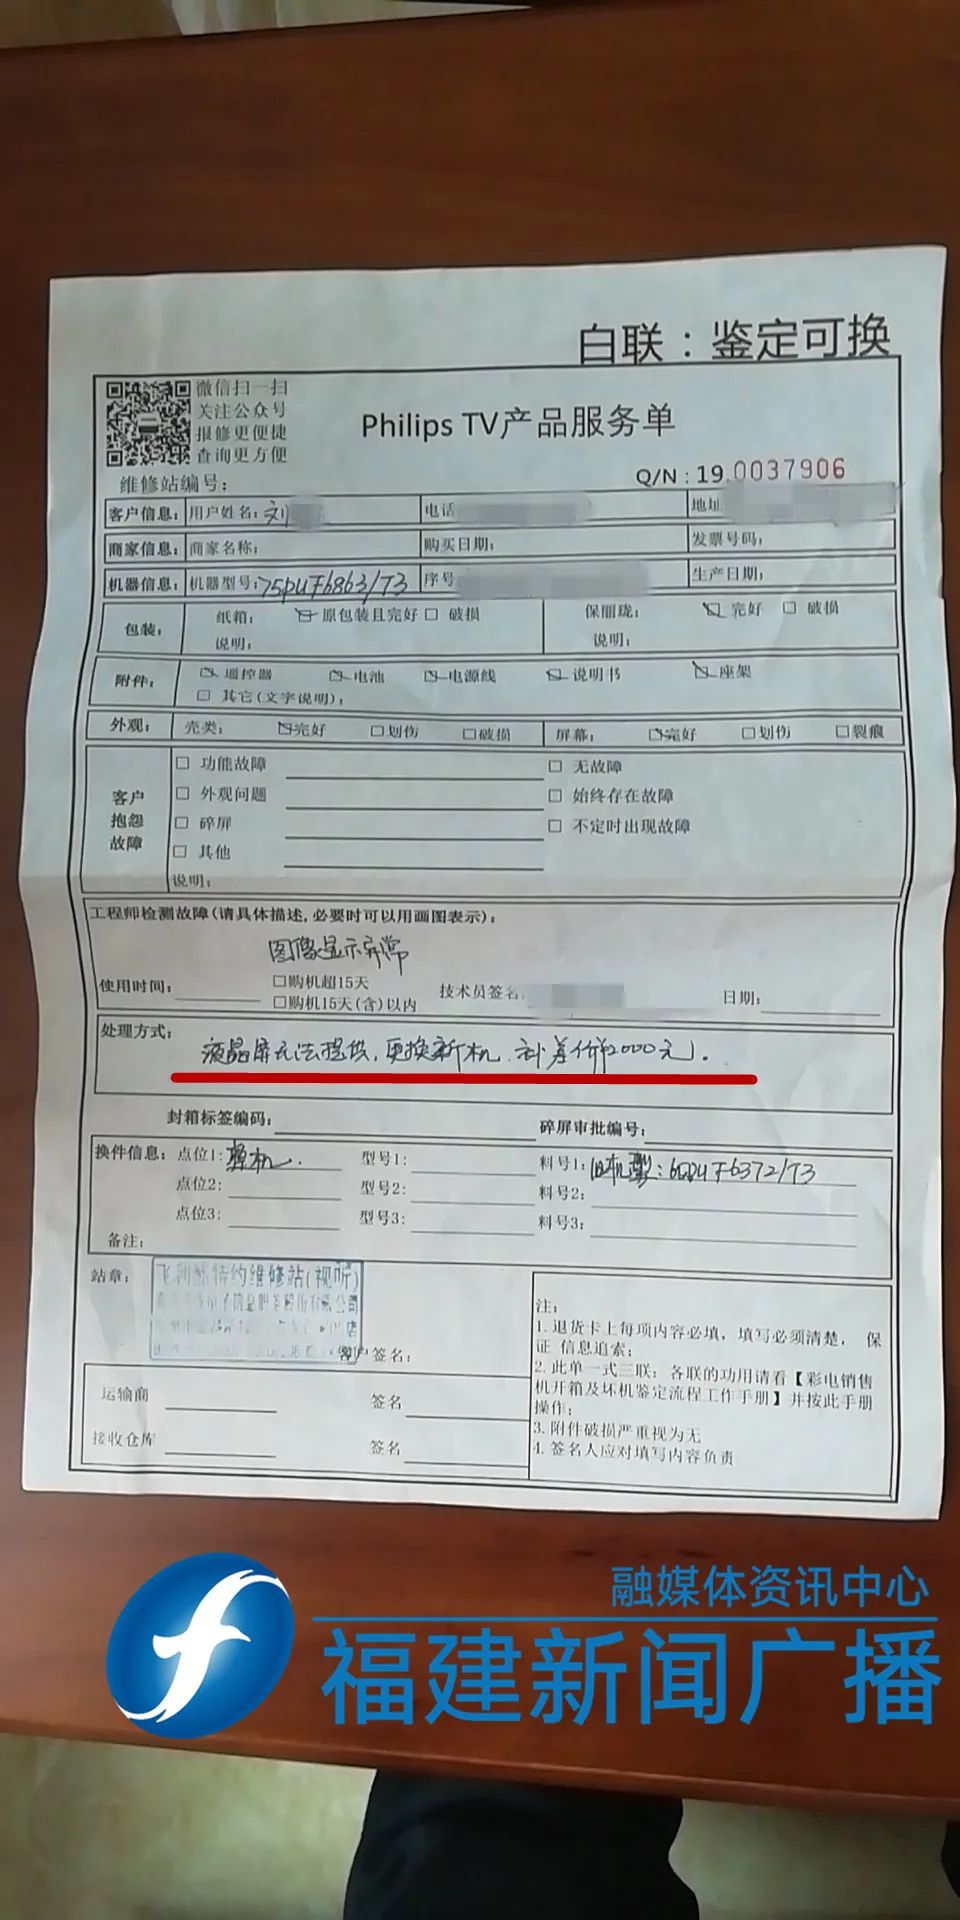 白联：鉴定可换
微信扫一扫
关注公众号
报修更便捷
查询更方便
Philips TV产品服务单
维修站编号：
Q/N：19.0037906
客户信息： 用户姓名：刘 电话 地址
商家信息： 商家名称： 购买日期： 发票号码：
机器信息： 机器型号：75PUF6863/T3 序号 生产日期：
包装： 纸箱： 原包装且完好 □ 破损 保丽珑： 完好 □ 破损
说明： 说明：
附件： 遥控器 电池 电源线 说明书 座架
□ 其它(文字说明)：
外观： 壳类： 完好 □划伤 □破损 屏幕： 完好 □划伤 □裂痕
客户抱怨故障
□ 功能故障 □ 无故障
□ 外观问题 □ 始终存在故障
□ 碎屏 □ 不定时出现故障
□ 其他
说明：
工程师检测故障(请具体描述,必要时可以用画图表示)：
图像显示异常
使用时间： □购机超15天 技术员签名 日期：
□购机15天(含)以内
处理方式：
液晶屏无法提供，更换新机，补差价2000元。
封箱标签编码： 碎屏审批编号：
换件信息： 点位1：整机. 型号1： 料号1：旧机型：65PUF6372/T3
点位2： 型号2： 料号2：
点位3： 型号3： 料号3：
备注：
站章：
飞利浦特约维修站(视听)
客户签名：
运输商 签名
接收仓库 签名
注：
1.退货卡上每项内容必填，填写必须清楚， 保
证 信息追索；
2.此单一式三联：各联的功用请看【彩电销售
机开箱及坏机鉴定流程工作手册】并按此手册
操作；
3.附件破损严重视为无
4.签名人应对填写内容负责
融媒体资讯中心
福建新闻广播